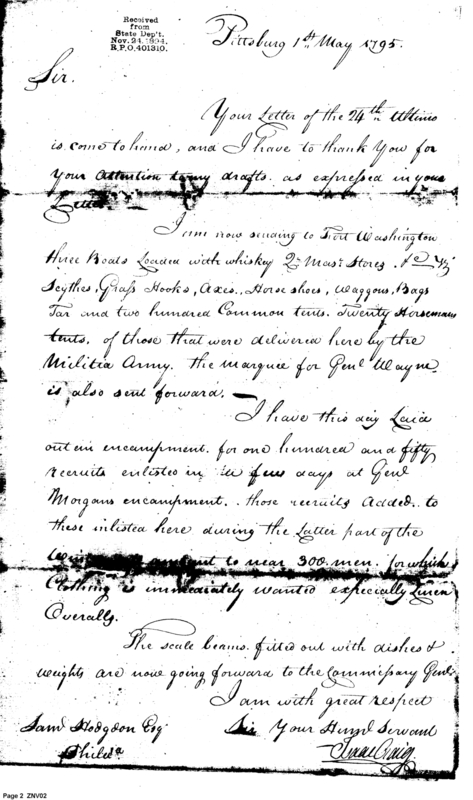 Received
from
State Dep't.
Nov. 24, 1894.
R.P.O. 401310.
Pittsburg 1st May 1795.
Sir.
Your Letter of the 24th Ultimo
is come to hand, and I have to thank You for
Your attention to my drafts. as expressed in your
Letter.
I am now sending to Fort Washington
three Boats Loaded with whiskey Qr Masr Stores,
Scythes, Grass Hooks, Axes, Horse shoes, Waggons, Bags
Tar and two hundred Common tents. Twenty Horsemans
tents, of those that were delivered here by the
Militia Army. the marquee for Genl Wayne
is also sent forward.
I have this day Laid
out an encampment. for one hundred and fifty
recruits enlisted in a few days at Genl
Morgans encampment. those recruits added. to
these inlisted here during the Latter part of the
amount to near 300 men. for which
Clothing is immediately wanted especially Linen
Overalls.
The scale beams. fitted out with dishes &
weights are now going forward to the Commissary Genl.
I am with great respect
Saml Hodgdon Esqr Sir Your Humbl Servant
Philada Isaac Craig
Page 2 ZNV02